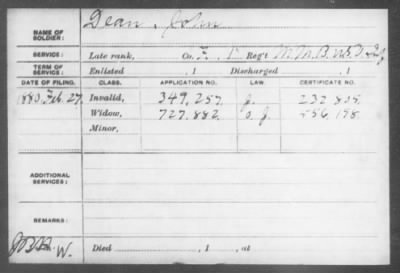 Dean, John
NAME OF SOLDIER:
SERVICE: Late rank, Co. F, 1 Reg't M.M.B. Vol. Inf
TERM OF SERVICE: Enlisted , 1 Discharged , 1
DATE OF FILING. CLASS. APPLICATION NO. LAW. CERTIFICATE NO.
1880 Feb. 27. Invalid, 349.257 g. 232.805
Widow, 727.882 o. g. 556.198
Minor,
ADDITIONAL SERVICES:
REMARKS:
W. Died , 1 , at